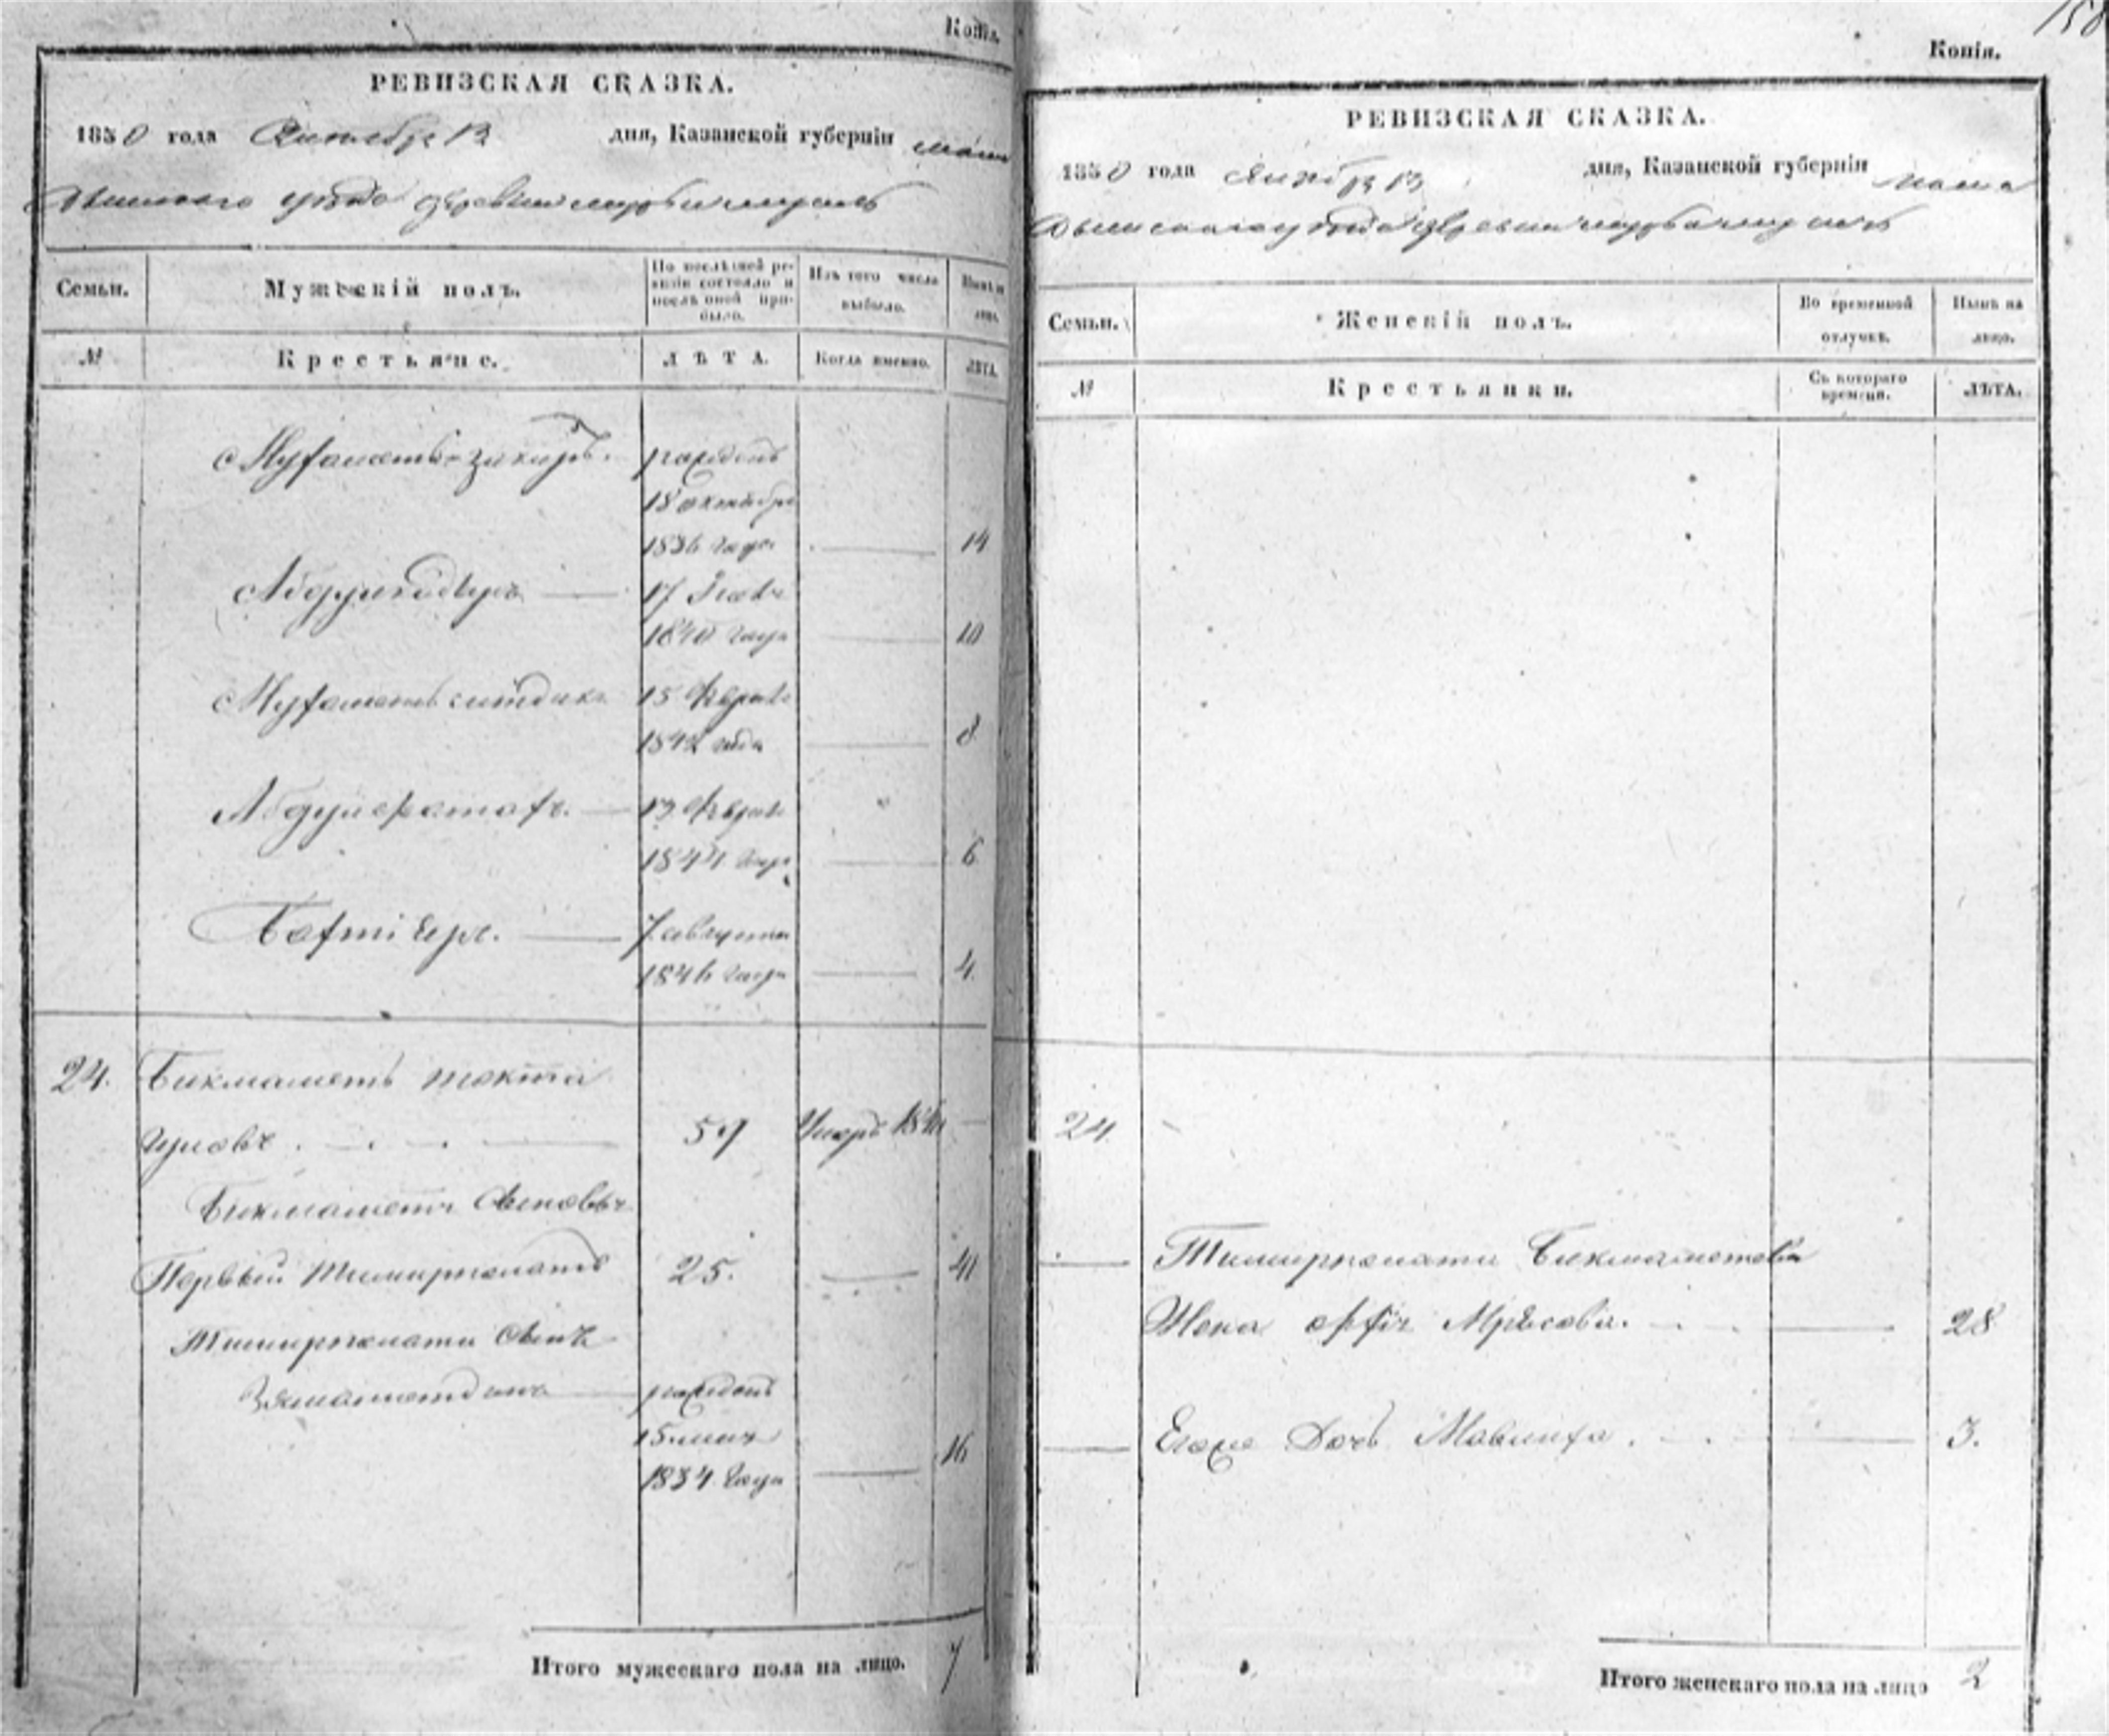 Копія.
РЕВИЗСКАЯ СКАЗКА.
1850 года Октября 13 дня, Казанской губерніи Мама
дышскаго уѣзда деревни
Семьи.
Мужескій полъ.
По послѣдней ре-
визіи состояло и
послѣ оной при-
было.
Изъ того числа
выбыло.
Нынѣ на
лицо.
№
Крестьяне.
ЛѢТА.
Когда именно.
ЛѢТА.
Мухаметь-закиръ. рожденъ
18 октября
1836 года 14
17
1840 года 10
Мухаметь ситдикъ 15 Февраля
1842 года 8
Абдулфатахъ. 13 Февраля
1844 года 6
Бахтіеръ. 7 августа
1846 года 4.
24. Бикмаметь Токта
гуловъ 57 Умеръ
Бикмаметя сыновья
Первый Тимирголатъ 25. 41
Тимирголата сынъ
рожденъ
15 мая
1834 года 16
Итого мужескаго пола на лицо. 7
158
Копія.
РЕВИЗСКАЯ СКАЗКА.
1850 года Октября 13 дня, Казанской губерніи Мама
дышскаго уѣзда деревни
Семьи.
Женскій полъ.
Во временной
отлучкѣ.
Нынѣ на
лицо.
№
Крестьянки.
Съ котораго
времени.
ЛѢТА.
24
Тимирголата Бикмаметева
Жена 28
Егоже Дочь Мавлиха. 3.
Итого женскаго пола на лицо 2